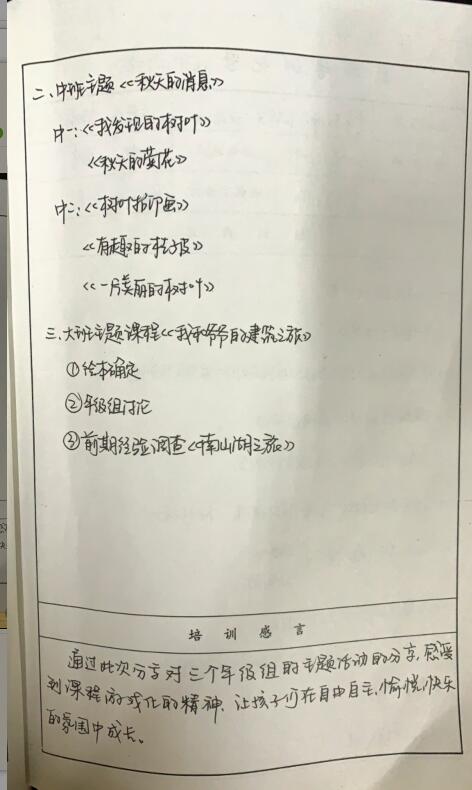 二、中班主题《秋天的消息》
中一:《我发现的树叶》
《秋天的菊花》
中二:《树叶拓印画》
《有趣的桔子皮》
《一片美丽的树叶》
三、大班主题课程《我和爷爷的建筑之旅》
①绘本确定
②年级组讨论
③前期经验调查《南山湖之旅》
培训感言
通过此次分享对三个年级组的主题活动的分享,感受
到课程游戏化的精神、让孩子们在自由自主、愉悦、快乐
的氛围中成长。